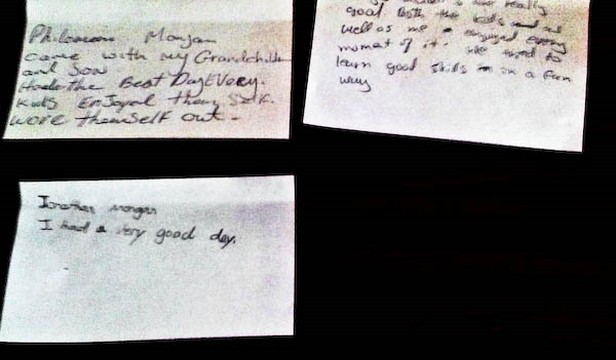 Philomena Morgan
came with my Grandchilde
and Son
Hade the Best Day Every.
Kids Enjoyed them Self.
wore themself out -
really
good both the kids and us
well as me enjoyed every
moment of it. We
learn good skills in a fun
way
Jonathan Morgan
I had a very good day.